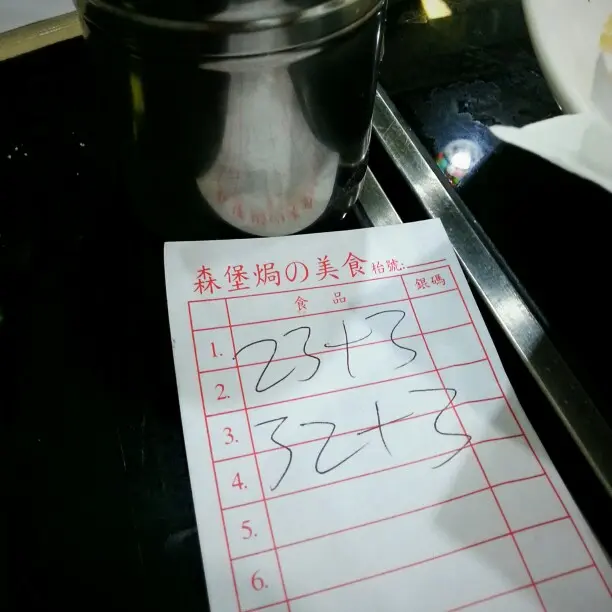 森堡焗の美食 枱號:
食 品 銀碼
1. 23+3
2.
3. 32+3
4.
5.
6.